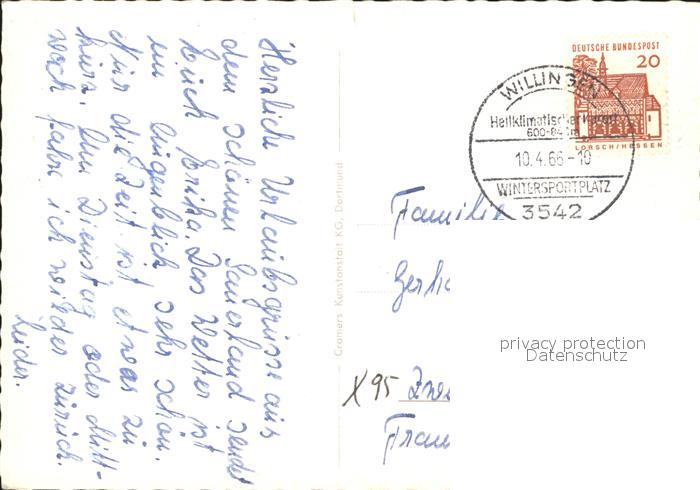 Herzliche Urlaubsgrüsse aus
dem schönen Sauerland sendet
Euch Erika. Das Wetter ist
im Augenblick sehr schön.
Nur die Zeit ist etwas zu
kurz. Am Dienstag oder Mitt-
woch fahre ich wieder zurück.
Leider.
Cramers Kunstanstalt KG, Dortmund
DEUTSCHE BUNDESPOST
20
LORSCH/HESSEN
WILLINGEN
Heilklimatischer
600-843m
10.4.66-10
WINTERSPORTPLATZ
3542
Familie
Gerh
privacy protection
Datenschutz
X95
Fran